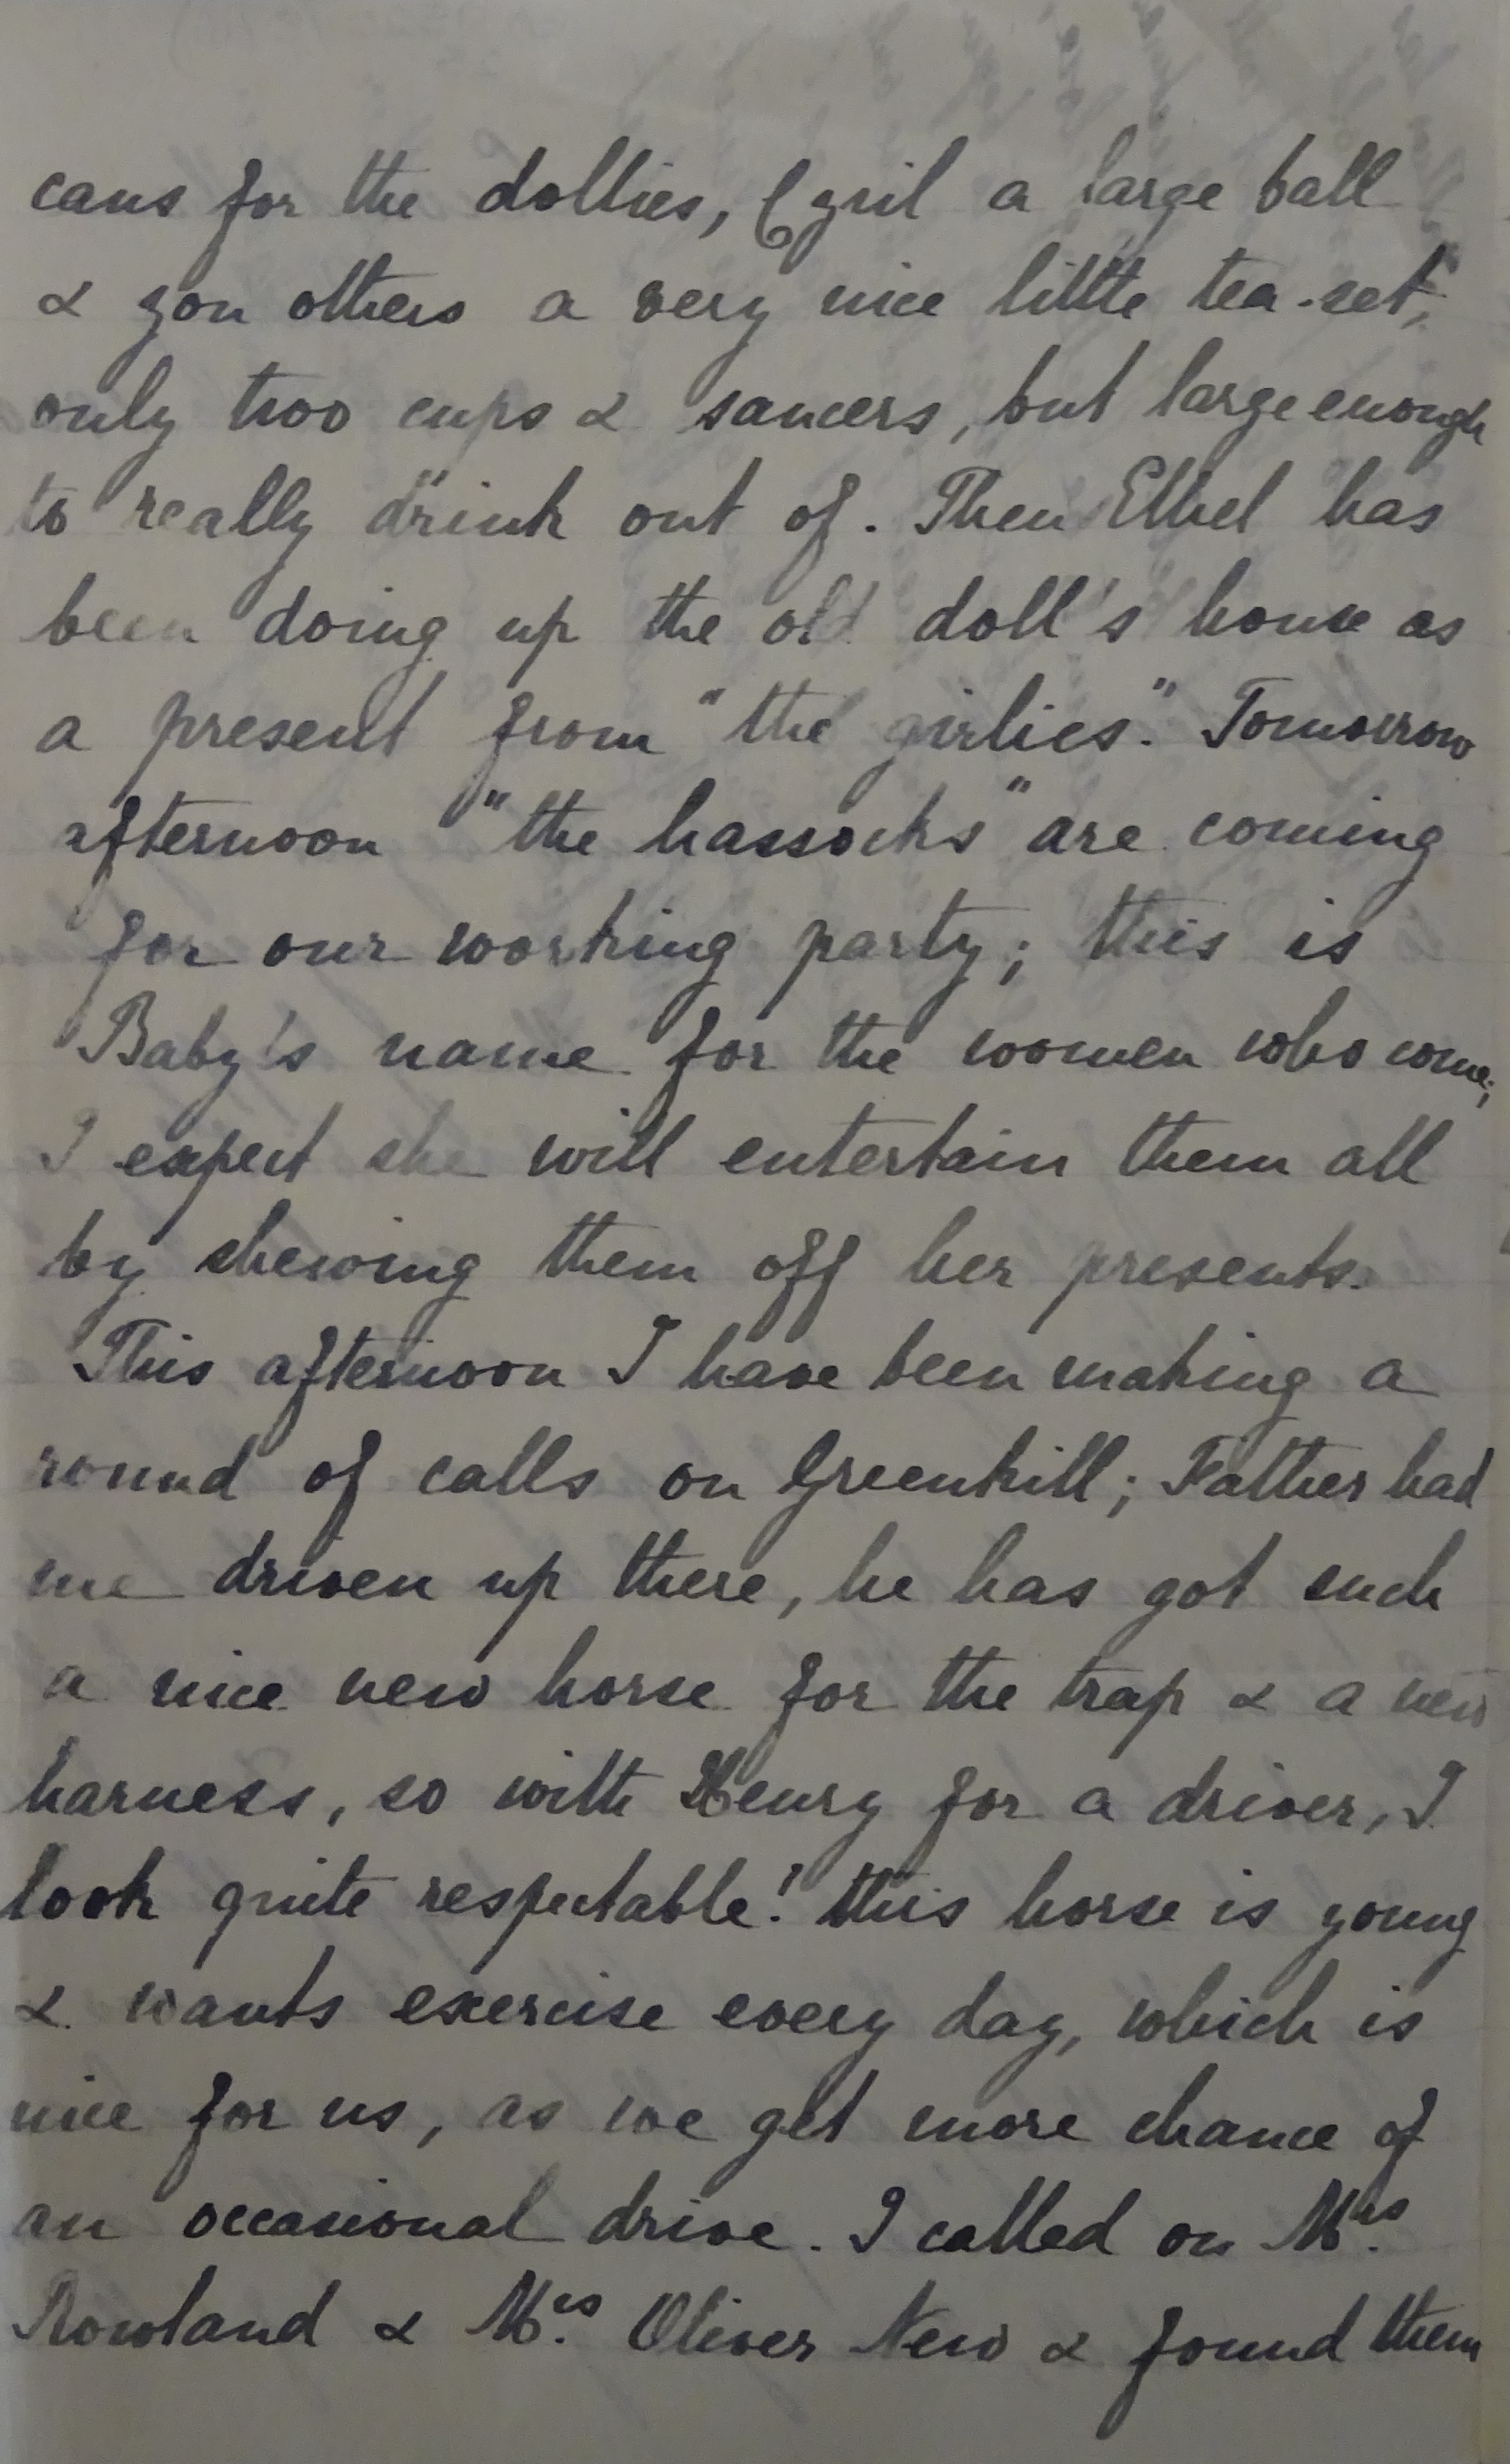 cans for the dollies, Cyril a large ball
& you others a very nice little tea-set,
only two cups & saucers, but large enough
to really drink out of. Then Ethel has
been doing up the old doll's house as
a present from "the girlies." Tomorrow
afternoon "the hassocks" are coming
for our working party; this is
Baby's name for the women who come;
I expect she will entertain them all
by shewing them off her presents.
This afternoon I have been making a
round of calls on Greenhill; Father had
me driven up there, he has got such
a nice new horse for the trap & a new
harness, so with Henry for a driver, I
look quite respectable! this horse is young
& wants exercise every day, which is
nice for us, as we get more chance of
an occasional drive. I called on Mrs.
Rowland & Mrs. Oliver New & found them